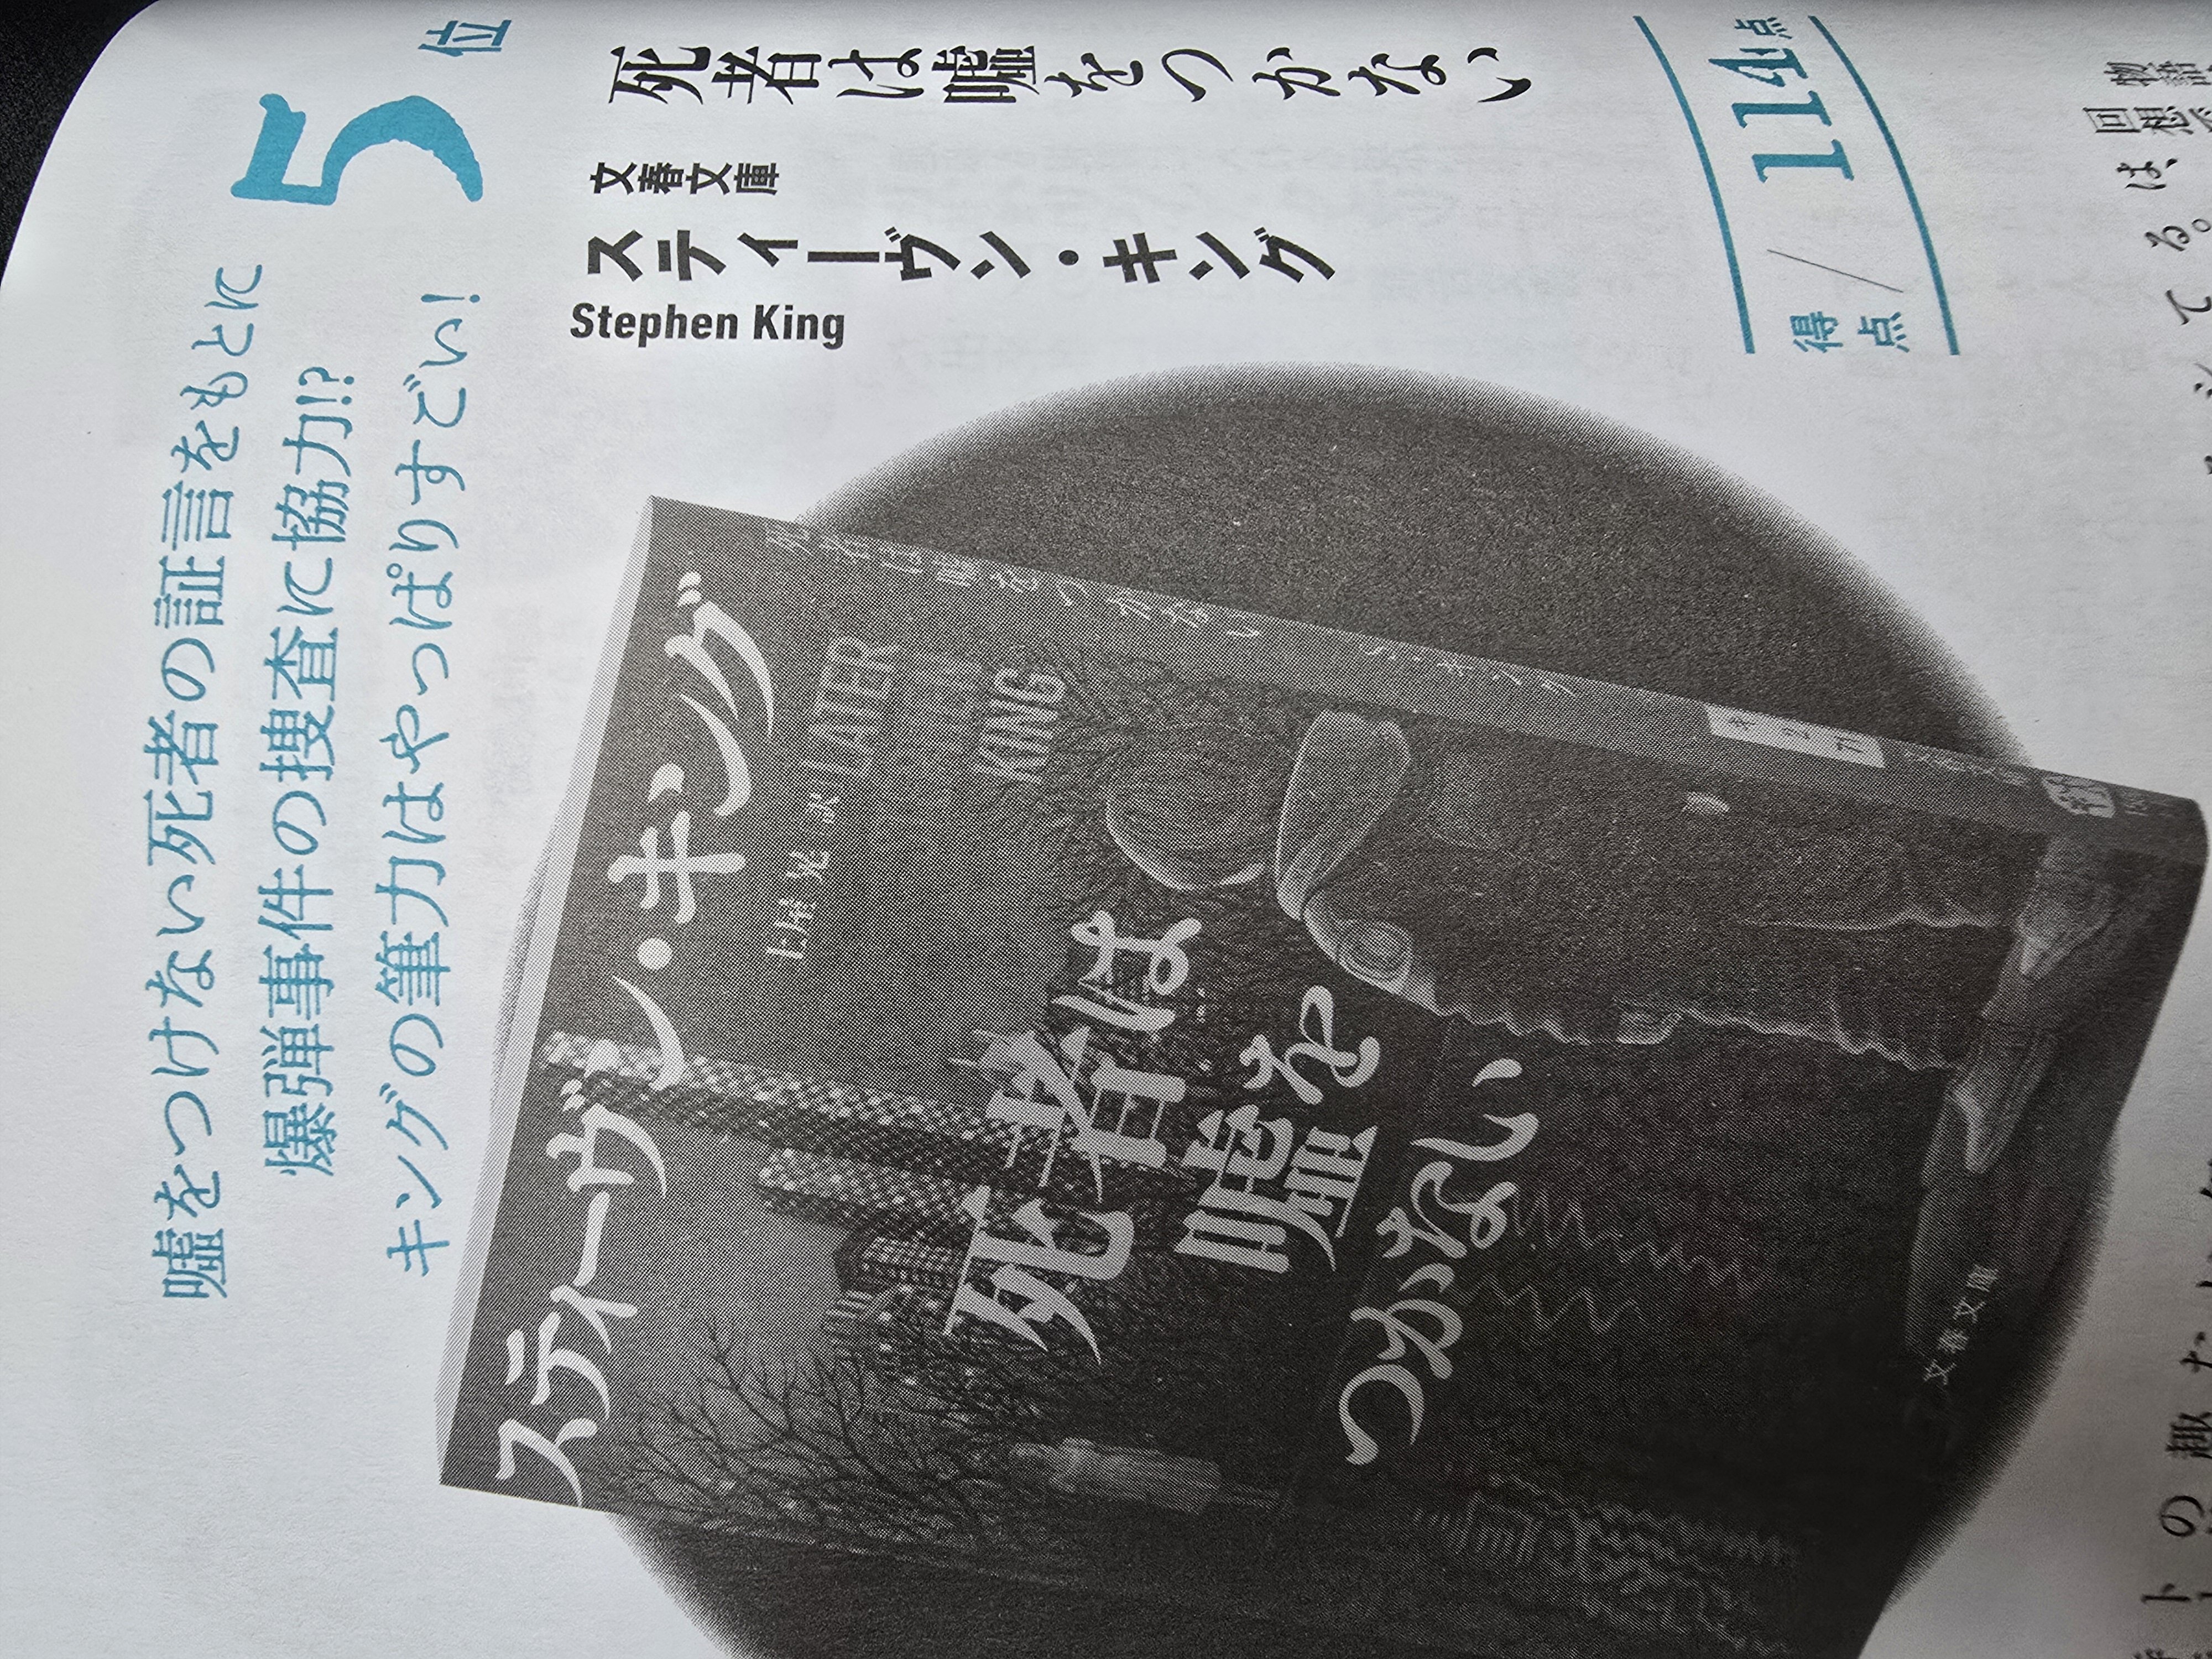 5位
嘘をつけない死者の証言をもとに
爆弾事件の捜査に協力!?
キングの筆力はやっぱりすごい!
死者は嘘をつかない
文春文庫
スティーヴン・キング
Stephen King
得点/114点
スティーヴン・キング
土屋 晃 訳
LATER
KING
死者は
嘘を
つかない
文春文庫
死者は嘘をつかない
物語
回想で
は、
る。
て
の
趣
ト